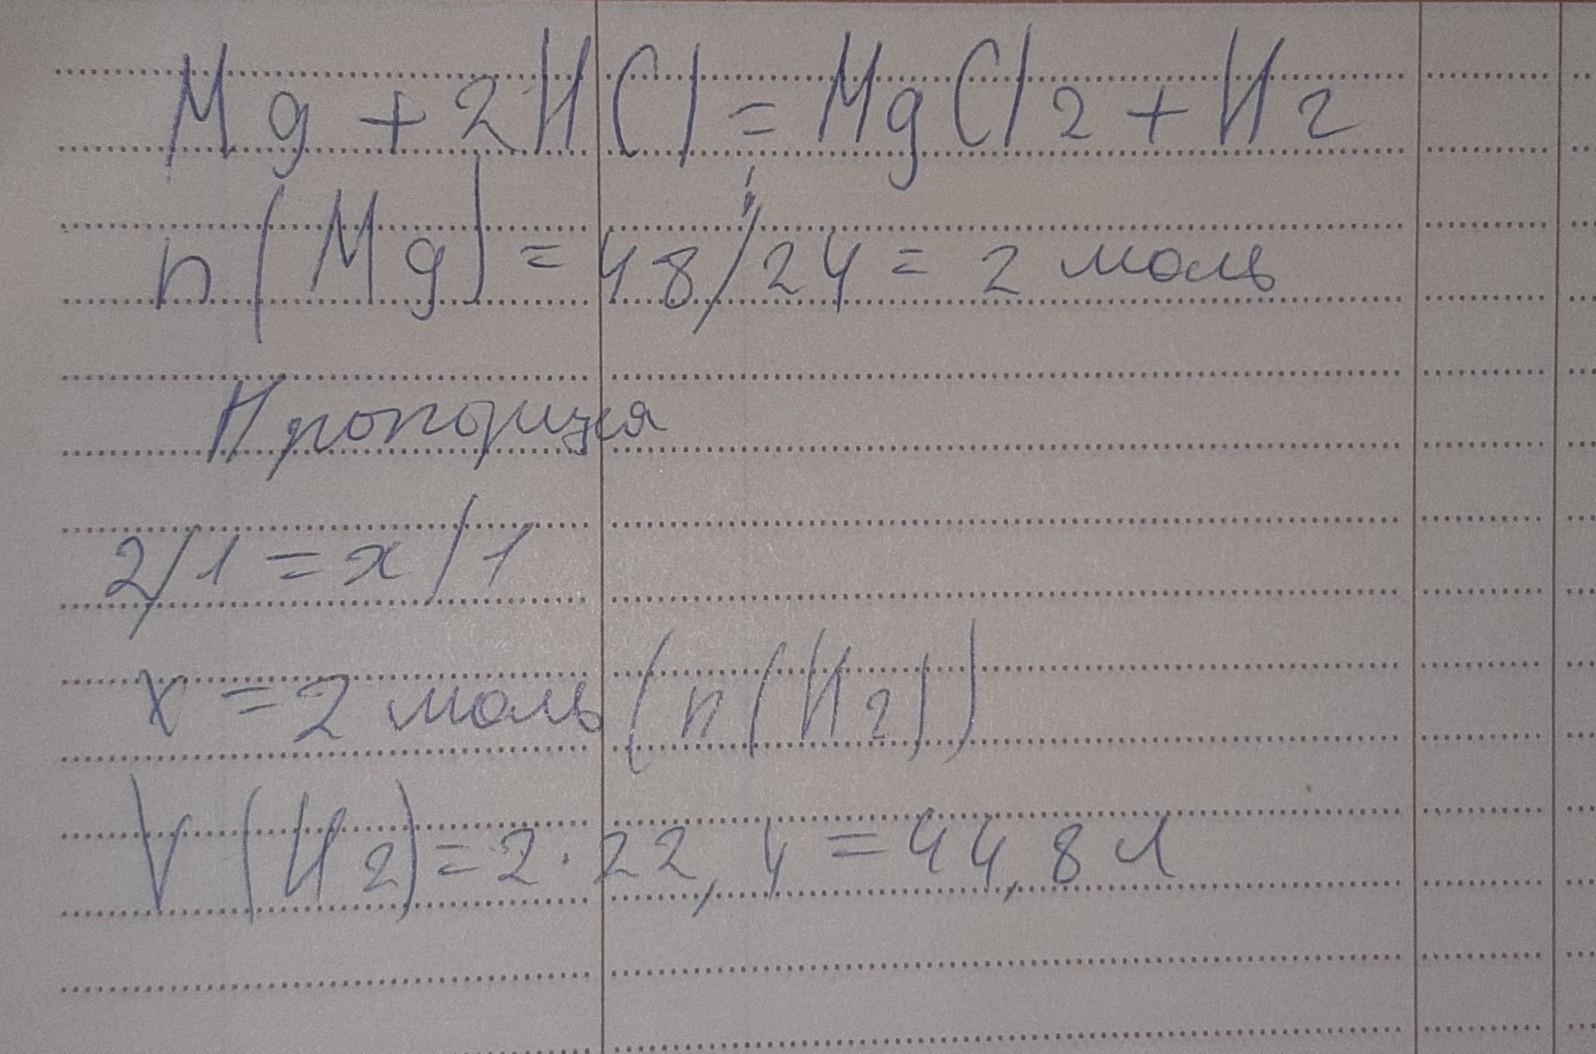 Mg + 2HCl = MgCl2 + H2
n(Mg) = 48/24 = 2 моль
Пропорция
2/1 = x/1
x = 2 моль (n(H2))
V(H2) = 2 · 22,4 = 44,8 л